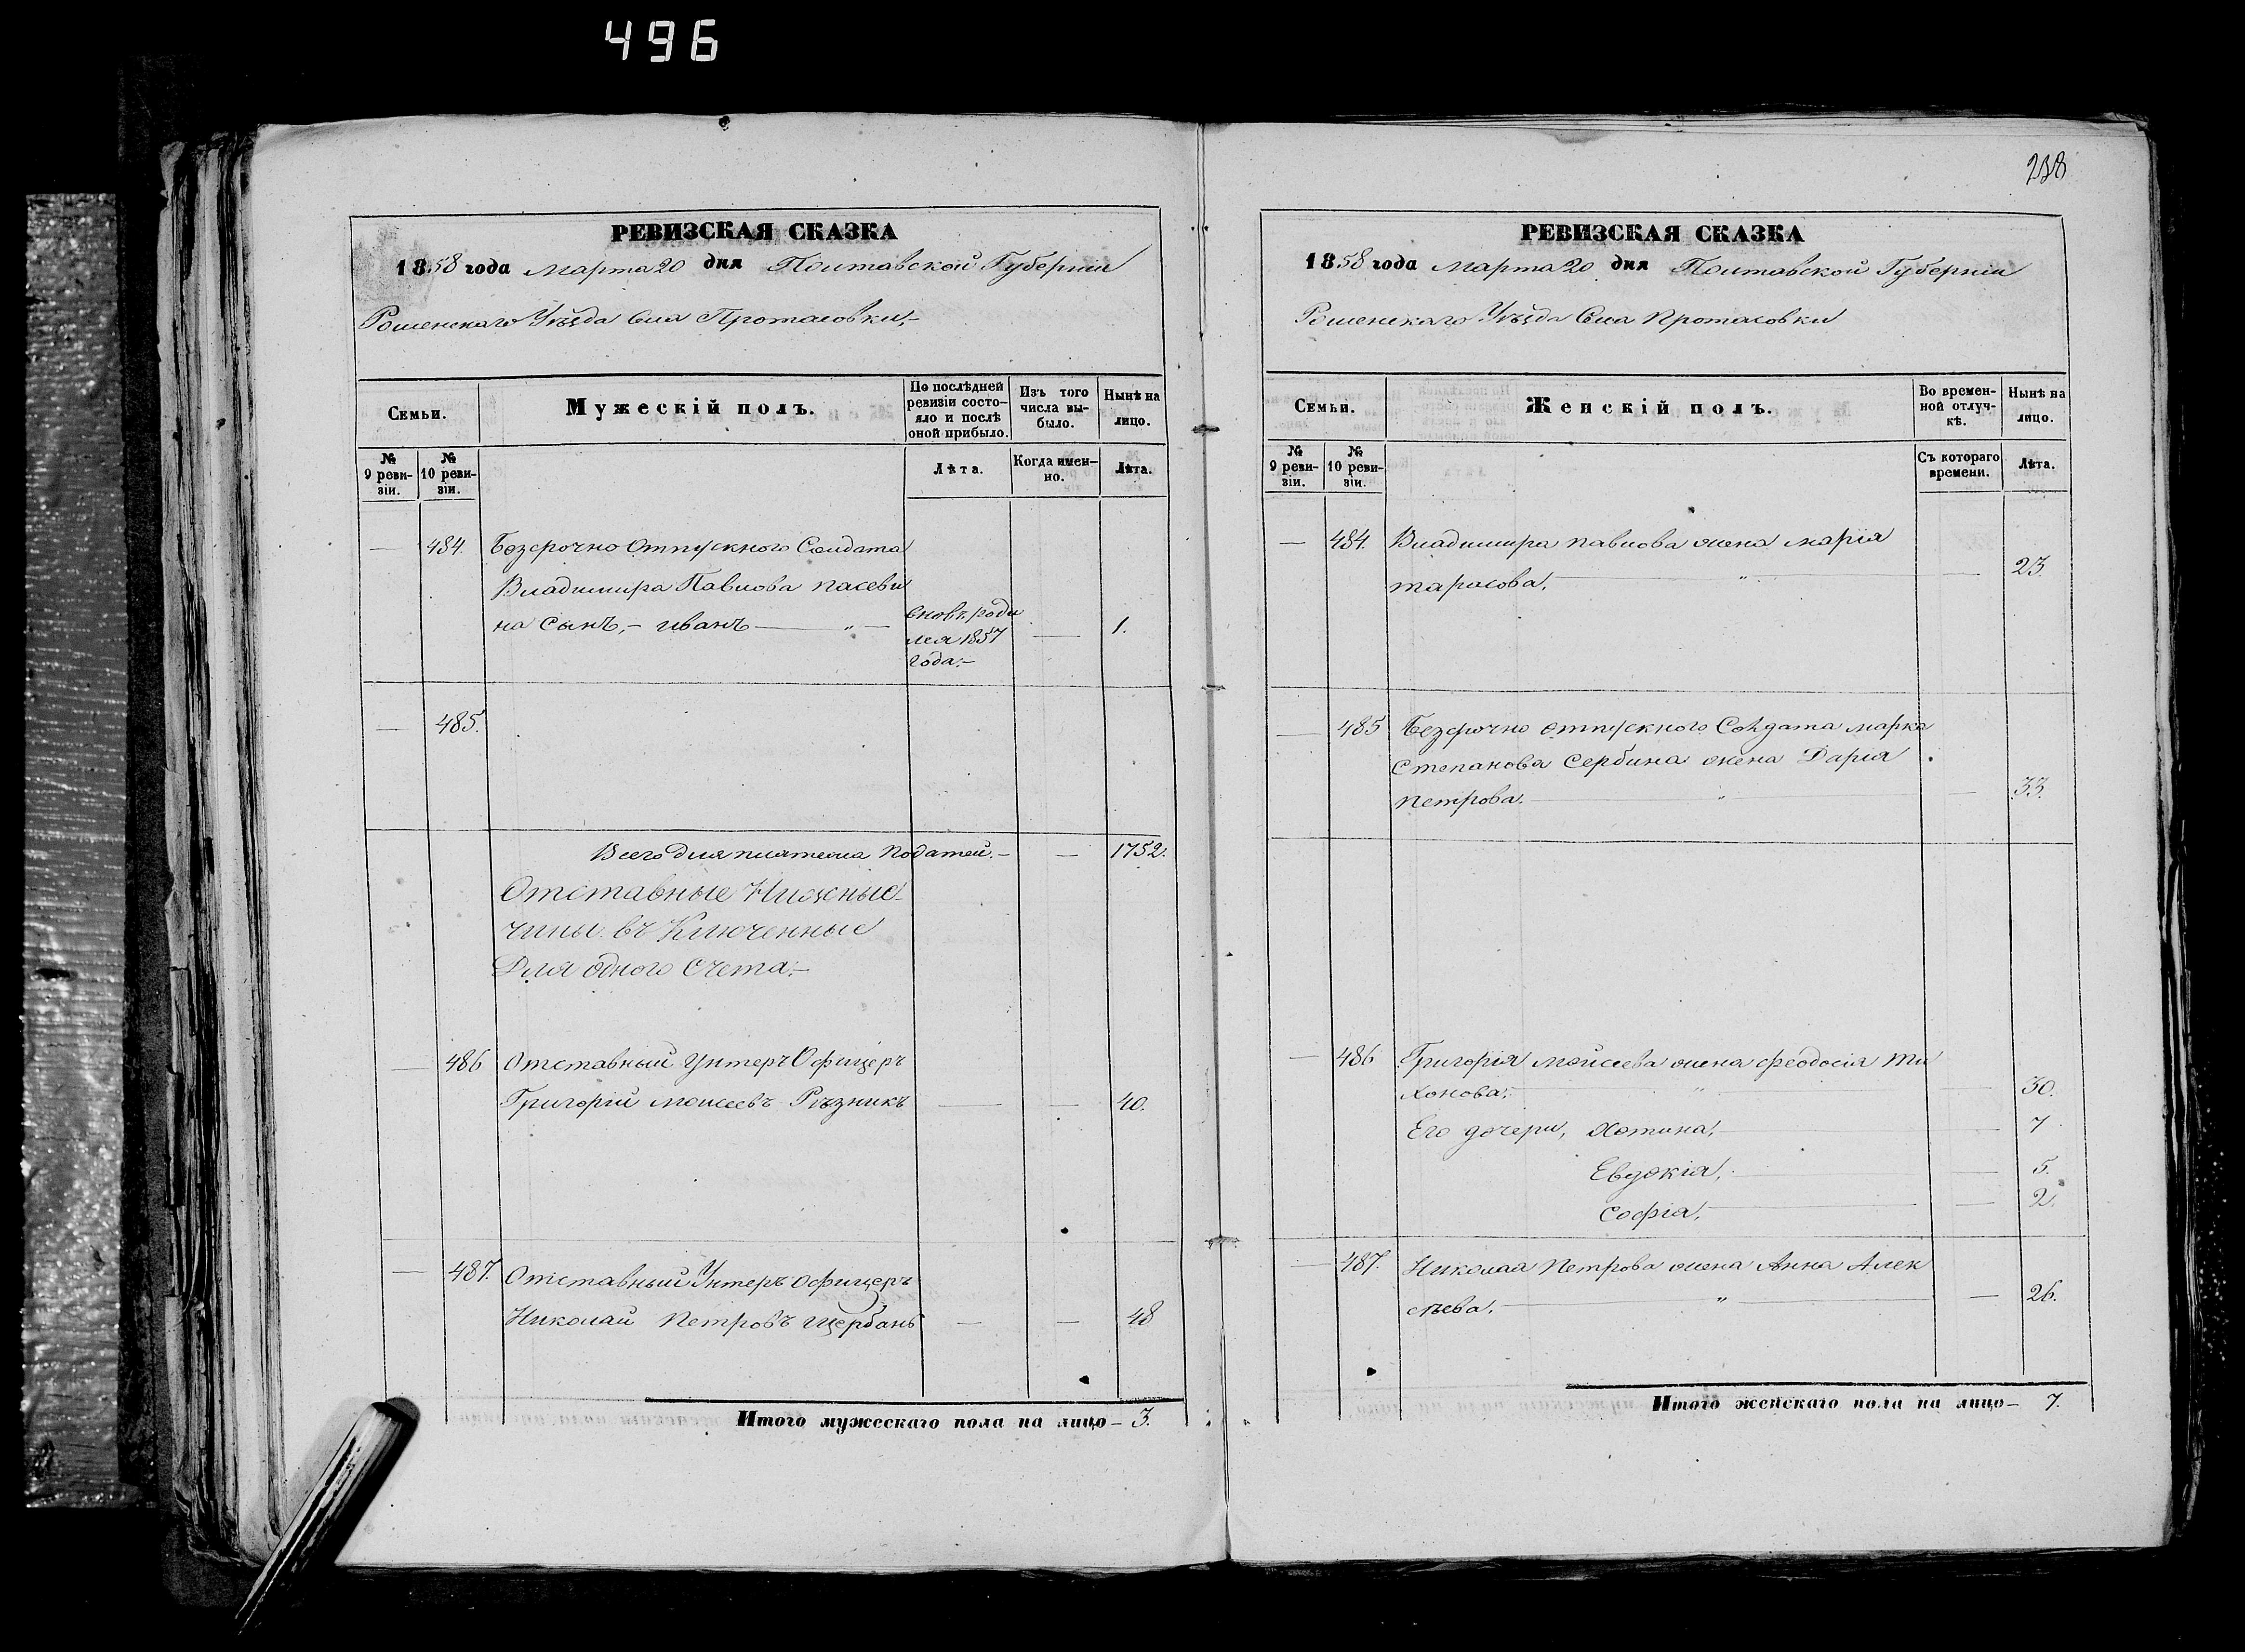 496
РЕВИЗСКАЯ СКАЗКА
1858 года марта 20 дня Полтавской Губерніи
Роменскаго Уѣзда Села Протасовки,
Семьи.
Мужескій полъ.
По послѣдней ревизіи состояло и послѣ оной прибыло.
Изъ того числа выбыло.
Нынѣ на лицо.
№ 9 ревизіи.
№ 10 ревизіи.
Лѣта.
Когда именно.
Лѣта.
— 484. Безсрочно Отпускного Солдата
Владимира Павлова Пасеви
на Сынъ, – иванъ — „ — вновь роди — 1.
лся 1857
года. –
— 485.
Всего для платежа податей. – — 1752.
Отставные Нижные
чины въ Ключенные
Для одного Счета: –
— 486 Отставный Унтеръ Офицеръ
Григорій Моисеевъ Рѣзникъ — — 40.
— 487. Отставный Унтеръ Офицеръ
Николай Петровъ Щербань — — 48
Итого мужескаго пола на лицо – 3.
238
РЕВИЗСКАЯ СКАЗКА
1858 года марта 20 дня Полтавской Губерніи
Роменскаго Уѣзда Села Протасовки
Семьи.
Женскій полъ.
Во временной отлучкѣ.
Нынѣ на лицо.
№ 9 ревизіи.
№ 10 ревизіи.
Съ котораго времени.
Лѣта.
— 484. Владимира павлова жена марія
тарасова. — „ — — 23.
— 485 Безсрочно отпускного Солдата марка
Степанова Сербина жена Дарія
Петрова. — „ — 33.
— 486 Григорія Моисеева жена феодосія Ти
хонова; — „ — — 30.
Его дочери, Хотина, — — 7
Евдокія, — — 5.
Софія, — — 2.
— 487. Николая Петрова жена Анна Алек
сѣева. — „ — — 26.
Итого женскаго пола на лицо – 7.